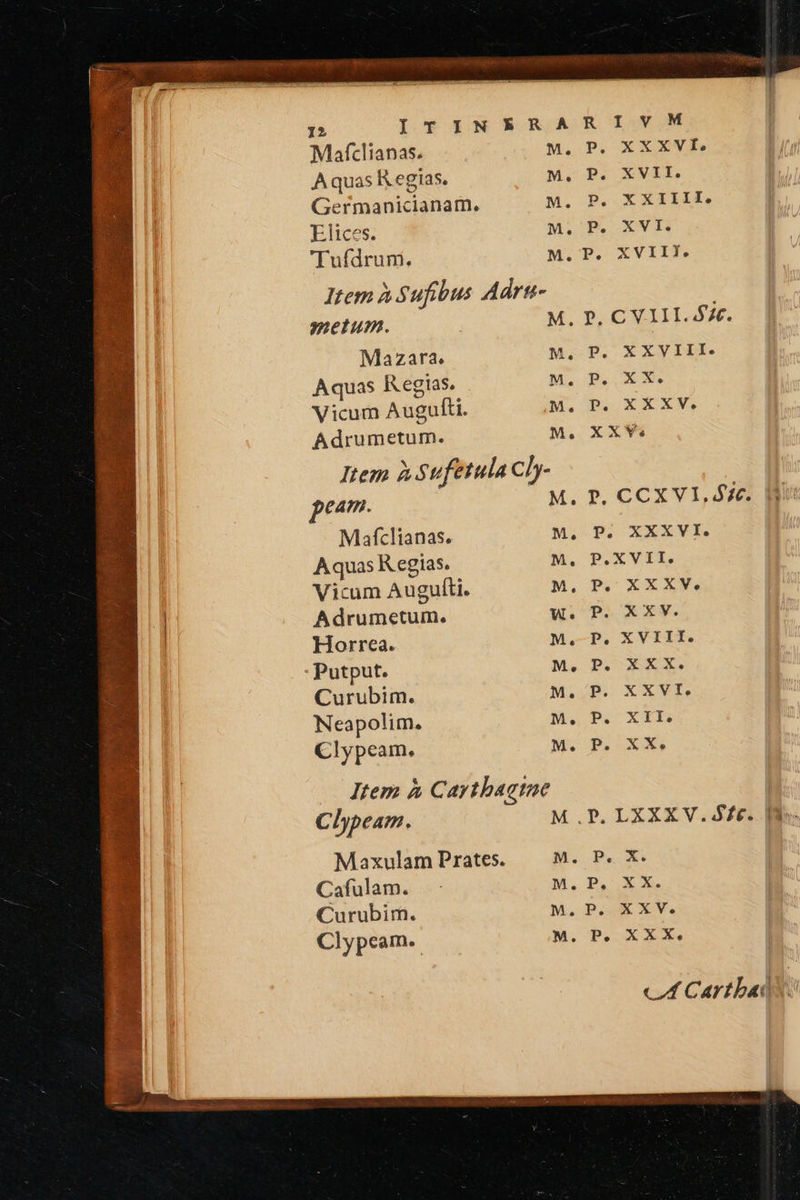 12 ITINERARIVM
Maſclianas. M. P. XXXVI.
Aquas Regias. M. P. XVII.
Germanicianam. M. P. XXIIII.
Elices. M. P. XVI.
Tuſdrum. M. P. XVIII.
Item à Sufibus Adru-
metum. M. P. CVIII. Sic.
Mazara. M. P. XXVIII.
Aquas Regias. M. P. XX.
Vicum Auguſti. M. P. XXXV.
Adrumetum. M. XXV.
Item à Sufetula Cly-
peam. M. P. CCXVI. Sic.
Maſclianas. M. P. XXXVI.
Aquas Regias. M. P. XVII.
Vicum Auguſti. M. P. XXXV.
Adrumetum. M. P. XXV.
Horrea. M. P. XVIII.
Putput. M. P. XXX.
Curubim. M. P. XXVI.
Neapolim. M. P. XII.
Clypeam. M. P. XX.
Item à Carthagine
Clypeam. M. P. LXXXV. Sic.
Maxulam Prates. M. P. X.
Caſulam. M. P. XX.
Curubim. M. P. XXV.
Clypeam. M. P. XXX.
A Cartha